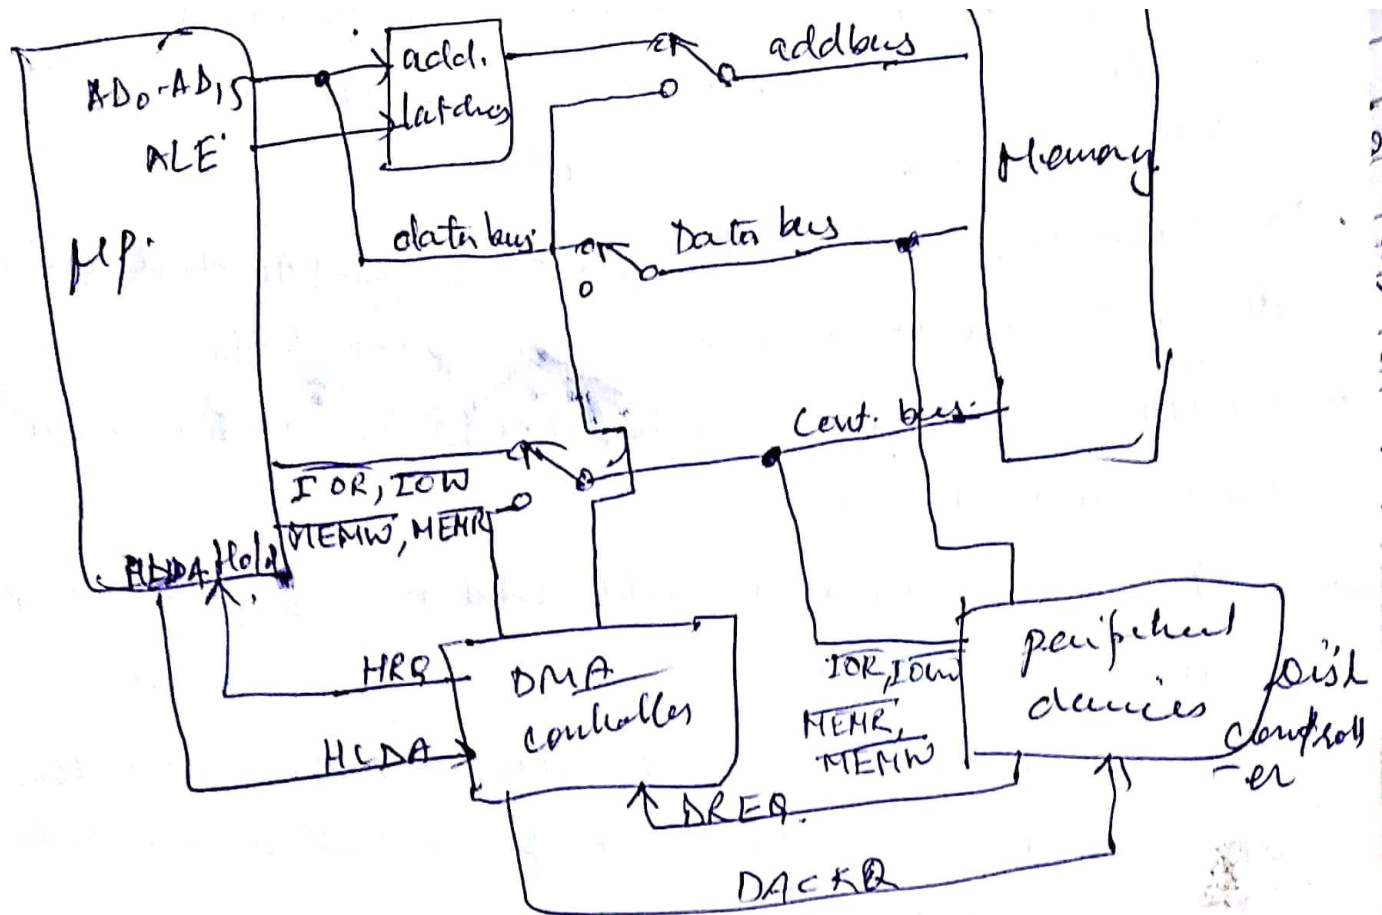 add.
addbus
AD0-AD15
latches
ALE
Memory
MP.
data bus
Data bus
Cont. bus
IOR, IOW
MEMW, MEMR
HLDA Hold
HRQ
DMA
controller
HLDA
IOR, IOW
MEMR,
MEMW
peripheral
devices
Disk
controll
-er
DREQ.
DACKQ